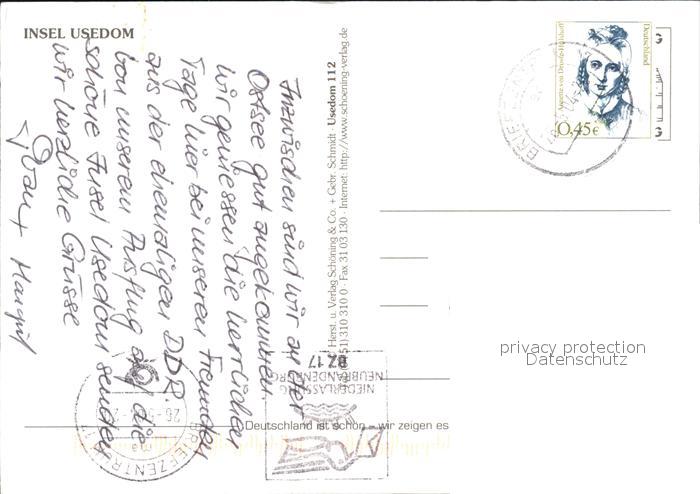 INSEL USEDOM
Inzwischen sind wir an der
Ostsee gut angekommen.
Wir geniessen die herrlichen
Tage hier bei unseren Freunden
aus der ehemaligen DDR
Von unserem Ausflug auf die
schöne Insel Usedom senden
wir herzliche Grüsse
+ Margrit
Herst. u. Verlag Schöning & Co. + Gebr. Schmidt · Usedom 112
51) 310 310 0 · Fax 31 03 130 · Internet: http://www.schoening-verlag.de
Annette von Droste-Hülshoff
Deutschland
0,45€
BRIEFZENTRUM 17
NIEDERLASSUNG
NEUBRANDENBURG
BZ 17
Deutschland ist schön - wir zeigen es
privacy protection
Datenschutz